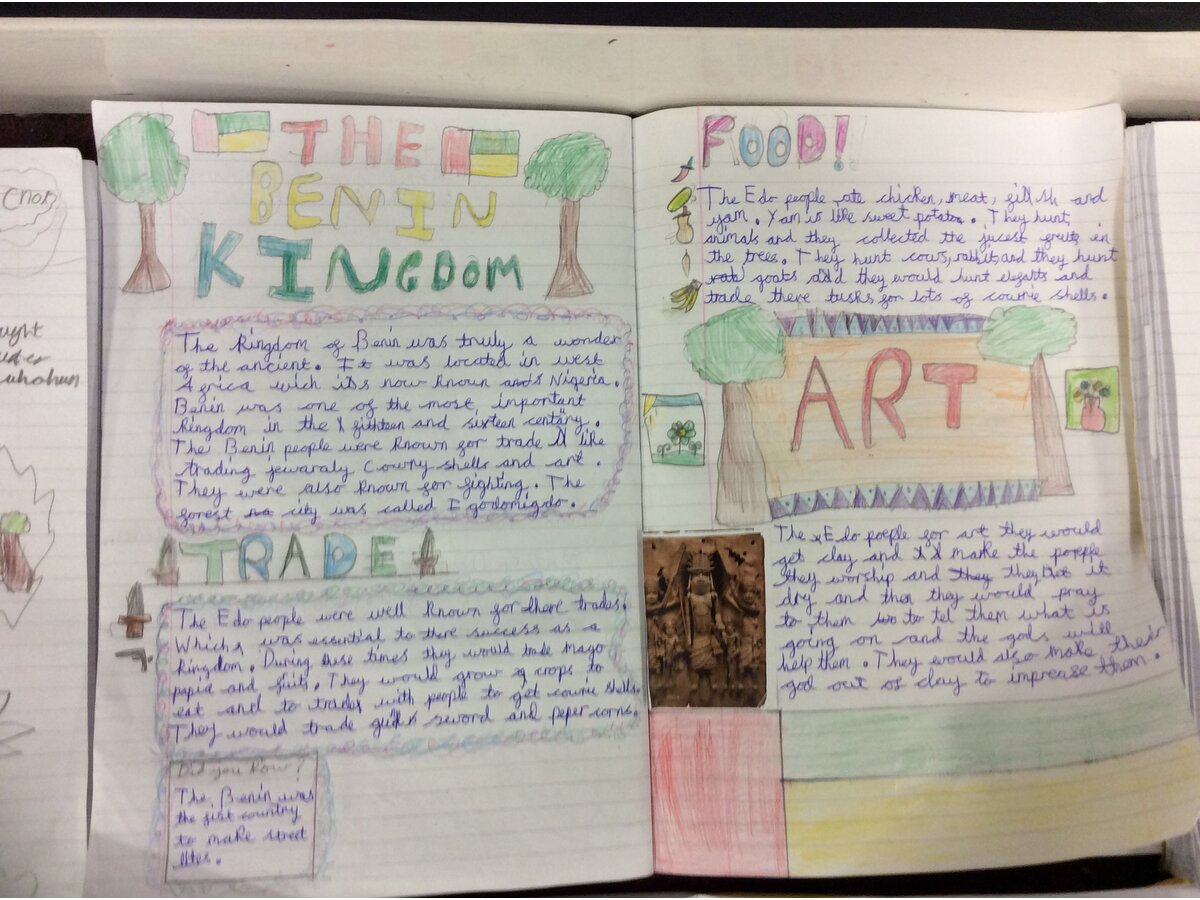 THE
BENIN
KINGDOM
The Kingdom of Benin was truly a wonder
of the ancient. It was located in west
Africa wich its now known Nigeria.
Benin was one of the most inportant
Kingdom in the fifthteen and sixteen centary.
The Benin people were known for trade like
trading jewaraly Cowry shells and art.
They were also known for fighting. The
forest city was called Egodomigdo.
TRADE
The Edo people were well known for there trades.
Which was essential to there success as a
Kingdom. During these times they would trade mago
papia and fuits. They would grow crops to
eat and to trades with people to get cowrie shells.
They would trade sword and peper corns.
Did you Kow?
The Benin was
the fist country
to make street
lites.
FOOD!
The Edo people ate chicken, meat, fish and
yam. Yam is like sweet potatoe. They hunt
animals and they collected the jucest fruits in
the trees. They hunt cows, rabbits, and they hunt
goats and they would hunt elefants and
trade there tusks for lots of cowrie shells.
ART
The Edo poeple for art they would
get clay and make the poeple
they worship and they they let it
dry and then they would pray
to them to tel them what is
going on and the gods will
help them. They would also make their
god out of clay to imprease them.
Cnon
ught